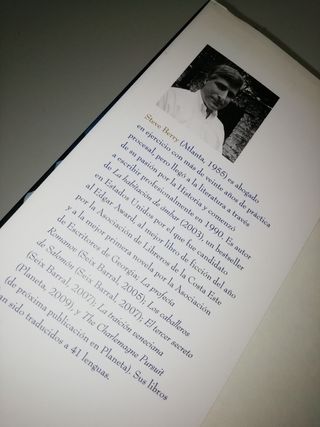 Steve Berry (Atlanta, 1955) es abogado
en ejercicio con más de veinte años de práctica
procesal, pero llegó a la literatura a través
de su pasión por la Historia y comenzó
a escribir profesionalmente en 1990. Es autor
de La habitación de ámbar (2003), un bestseller
en Estados Unidos por el que fue candidato
al Edgar Award, al mejor libro de ficción del año
por la Asociación de Libreros de la Costa Este
y a la mejor primera novela por la Asociación
de Escritores de Georgia; La profecía
Romanov (Seix Barral, 2005); Los caballeros
de Salomón (Seix Barral, 2007); El tercer secreto
(Seix Barral, 2007); La traición veneciana
(Planeta, 2009), y The Charlemagne Pursuit
(de próxima publicación en Planeta). Sus libros
an sido traducidos a 41 lenguas.